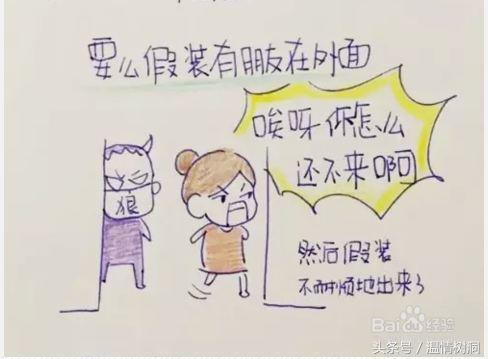 要么假装有朋友在外面
唉呀你怎么
还不来啊
狼
然后假装
不耐烦地出来了
Baidu经验
头条号／温情树洞